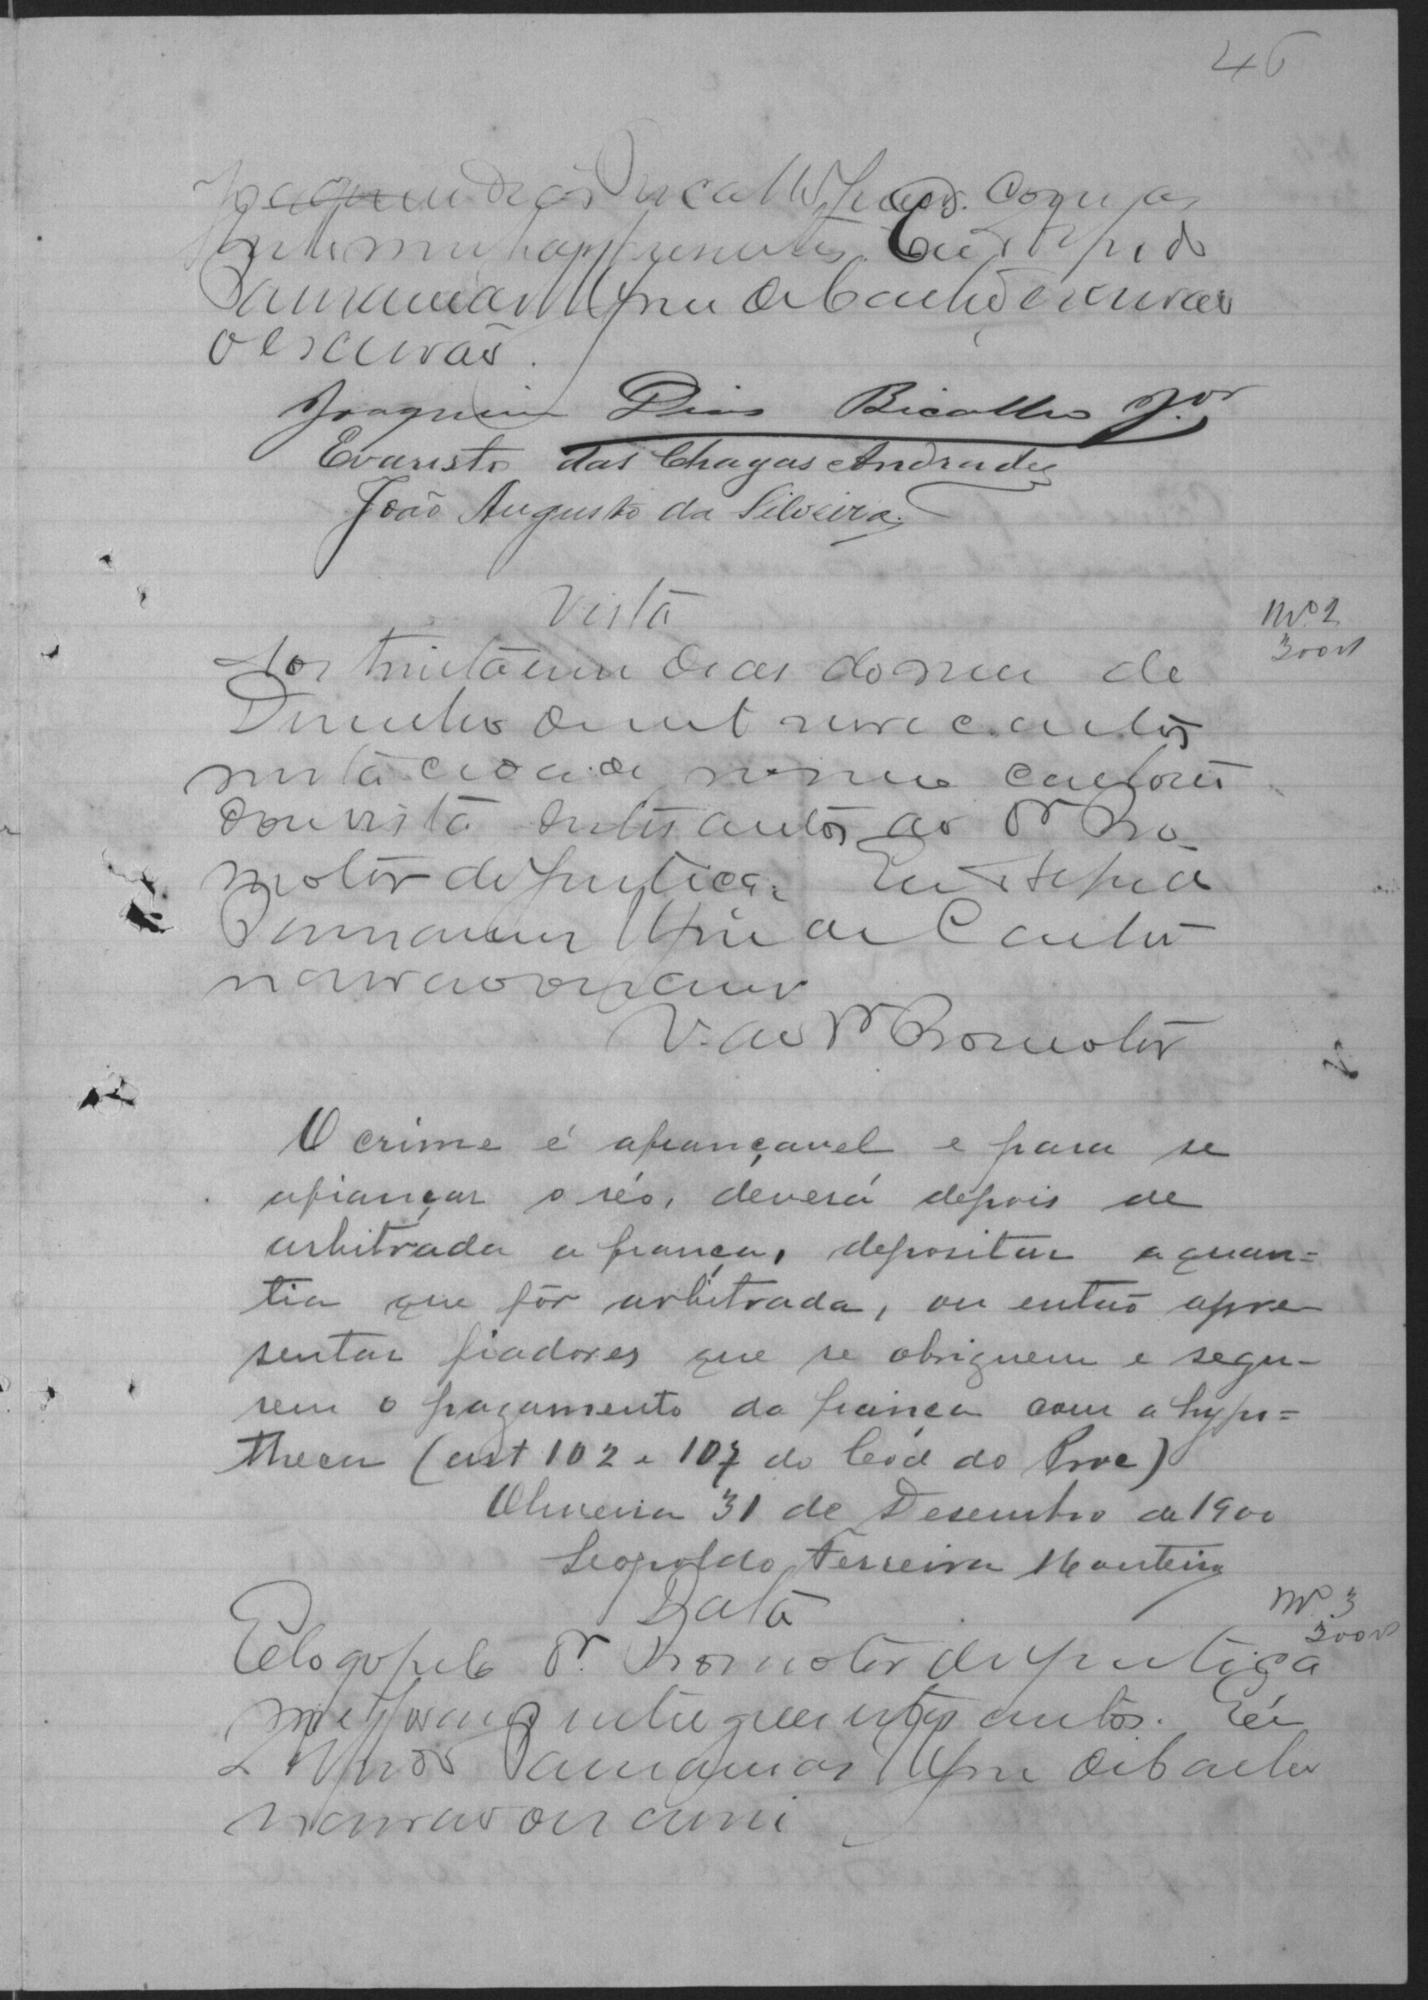 46
Joaquim Dias Bicalho Junior. com as
testemunhas presentes. Eu
escrivão
o escrevi.
Joaquim Dias Bicalho Jor
Evaristo das Chagas Andrade
João Augusto da Silveira
Vista
Nº 2
300 rs
Aos trinta e um dias do mez de
Dezembro de mil novecentos
nesta cidade em meu cartorio
dou vista destes autos ao Dr Pro-
motor de justiça. Eu
Castro
escrivão o escrevi
V. ao Dr Promotor
O crime é afiançavel e para se
afiançar o réo, deverá depois de
arbitrada a fiança, depositar a quan=
tia que fôr arbitrada, ou então apre
sentar fiadores que se obriguem e segu-
rem o pagamento da fiança com a hypo=
theca (art 102 e 107 do Cod do Proc)
Oliveira 31 de Desembro de 1900
Leopoldo Ferreira Monteiro
Data
Nº 3
300 rs
E logo pelo Dr. Promotor de justiça
me foram entregues estes autos. Eu
escrivão o escrevi